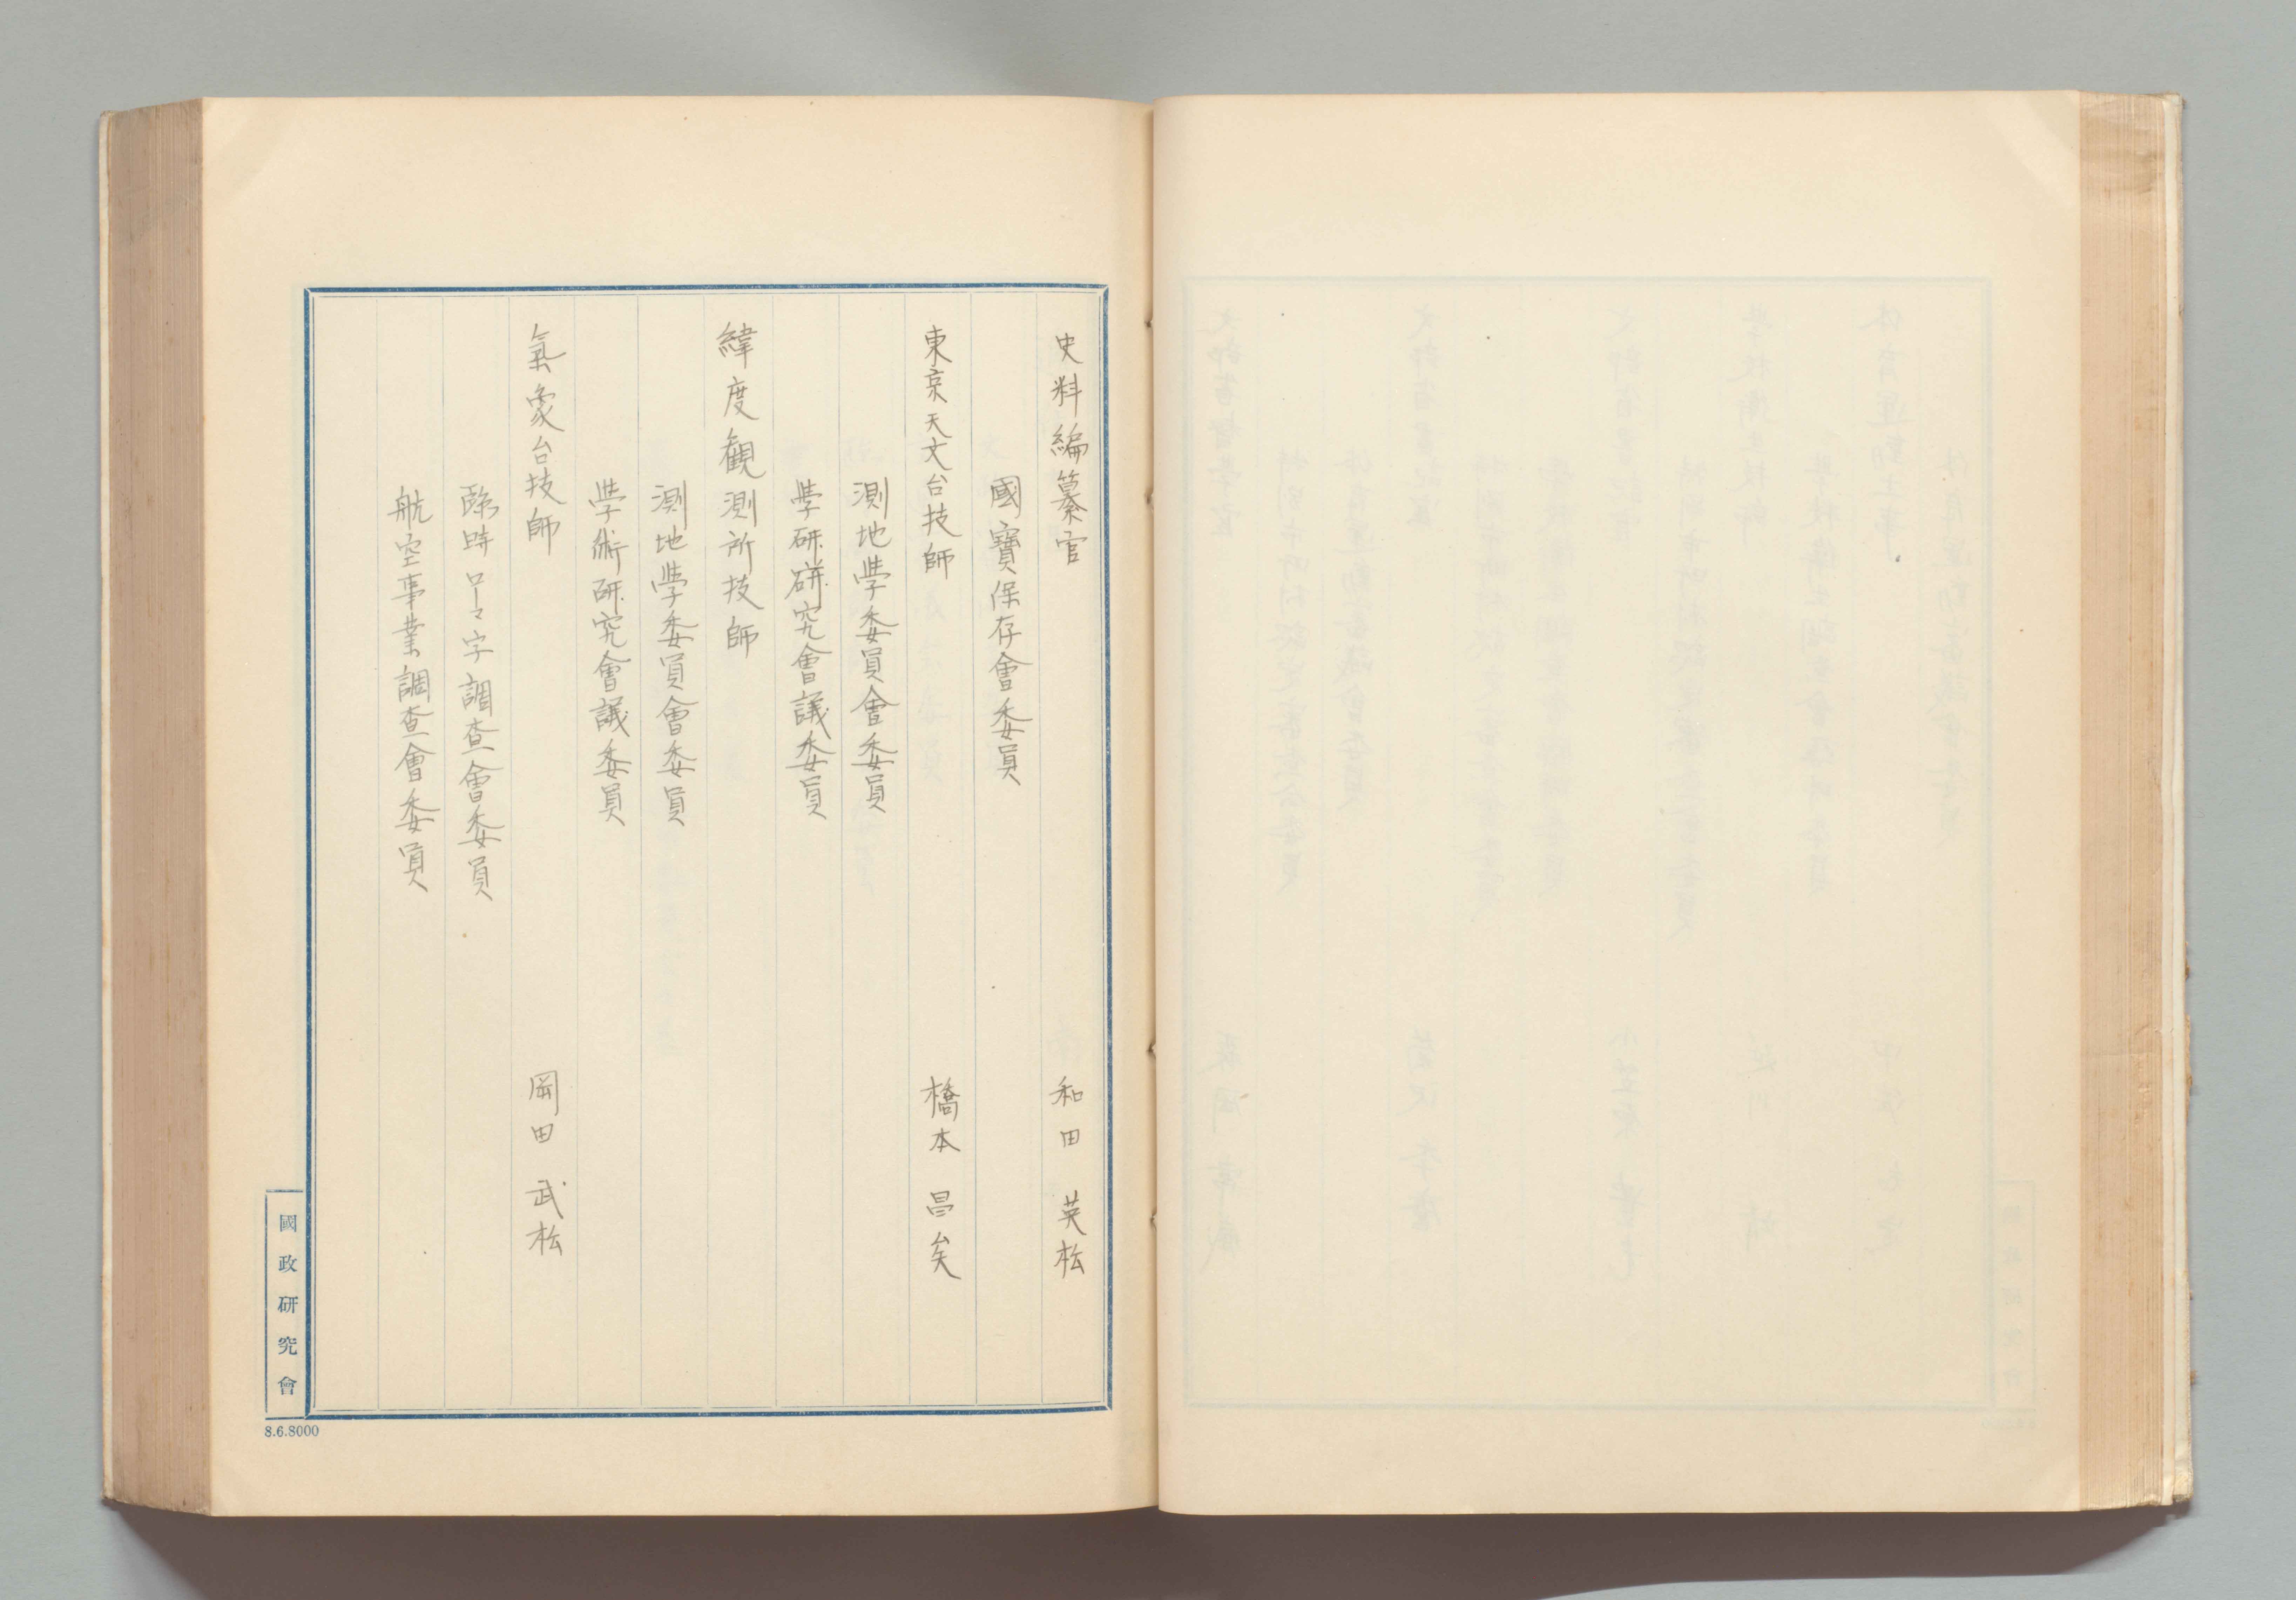 史料編纂官 和田 英松
國寶保存會委員
東京天文台技師 橋本 昌矣
測地學委員會委員
學研研究會議委員
緯度観測所技師
測地學委員會委員
學術研究會議委員
氣象台技師 岡田 武松
臨時ローマ字調査會委員
航空事業調査會委員
國政研究會
8.6.8000